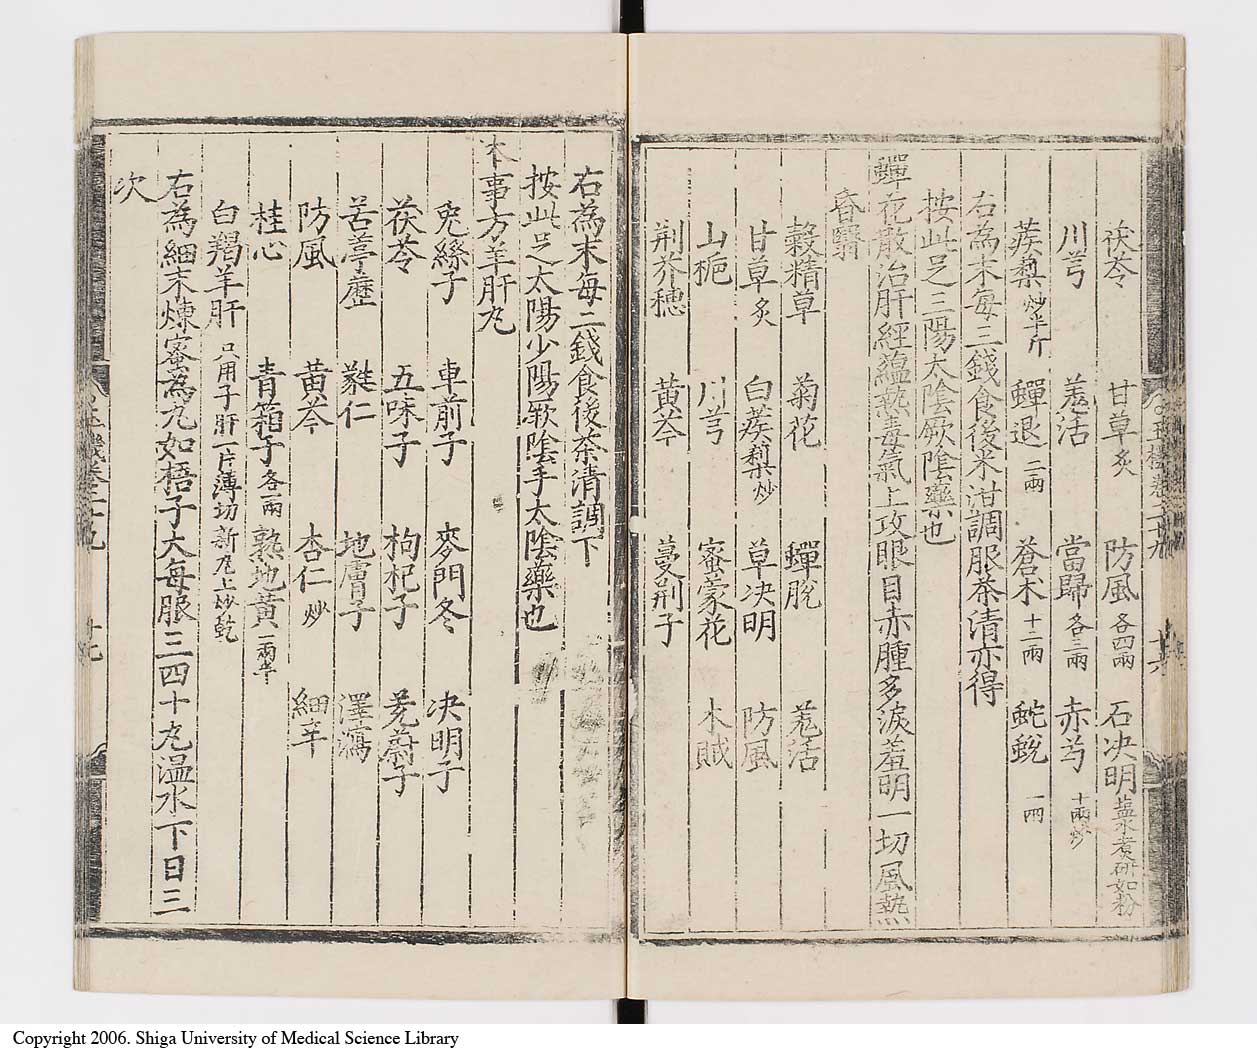 茯苓 甘草炙 防風各四兩 石决明塩水煮研如粉
川芎 羗活 當歸各三兩 赤芍十兩炒
蒺䔧炒半斤 蟬退二兩 蒼术十二兩 蛇蛻一兩
右為末每三錢食後米泔調服茶清亦得
按此足三陽太陰厥陰藥也
蟬花散治肝經蘊熱毒氣上攻眼目赤腫多淚羞明一切風熱
昏翳
穀精草 菊花 蟬脫 羗活
甘草炙 白蒺䔧炒 草决明 防風
山梔 川芎 蜜蒙花 木賊
荆芥穗 黄芩 蔓荆子
右為末每二錢食後茶清調下
按此足太陽少陽厥陰手太陰藥也
本事方羊肝丸
兎絲子 車前子 麥門冬 决明子
茯苓 五味子 枸杞子 茺蔚子
苦葶藶 蕤仁 地膚子 澤瀉
防風 黄芩 杏仁炒 細辛
桂心 青箱子各一兩 熟地黄一兩半
白羯羊肝只用子肝一片薄切新瓦上炒乾
右為細末煉蜜為丸如梧子大每服三四十丸温水下日三
次
Copyright 2006. Shiga University of Medical Science Library